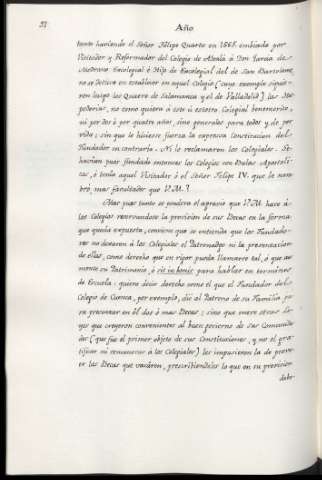 Año
tento haviendo el Señor Felipe Quarto en 1665. embiado por
Visitador y Reformador del Colegio de Alcalá á Don Garcia de
Medrano Excolegial é Hijo de Excolegial del de San Bartolomé
no se detuvo en establecer en aquel Colegio (cuyo exemplo siguie-
ron luego los Quatro de Salamanca y el de Valladolid) las Ho-
spederias, no como quiera á este ú estotro Colegial benemerito,
ni por dos ó por quatro años, sino generales para todos y de por
vida; sin que lo hiciese fuerza la expresa Constitucion del
Fundador en contrario. Ni lo reclamaron los Colegiales. Se-
havian pues fundado entonces los Colegios con Bulas Apostoli-
cas, ó tenia aquel Visitador ó el Señor Felipe IV. que le nom-
bró, mas facultades que V.M.?
Mas para tanto se pondera el agravio que V.M. hace á
los Colegios reservandose la provision de sus Becas en la forma
que queda expuesta, conviene que se entienda que los Fundado-
res no dexaron á los Colegiales el Patronazgo ni la presentacion
de ellas, como derecho que en rigor pueda llamarse tal, ó que au-
mente su Patrimonio, ó sit in bonis para hablar en terminos
de Escuela: quiero decir derecho como el que el Fundador del
Colegio de Cuenca, por exemplo, dió al Patrono de su Familia pa-
ra presentar en él dos ó mas Becas; sino que entre otras le-
yes que creyeron convenientes al buen govierno de sus Comunida-
des (que fue el primer objeto de sus Constituciones, y no el gra-
tificar ni remunerar á los Colegiales) les impusieron la de prove-
er las Becas que vacaren, prescribiendoles lo que en su provision
debe-